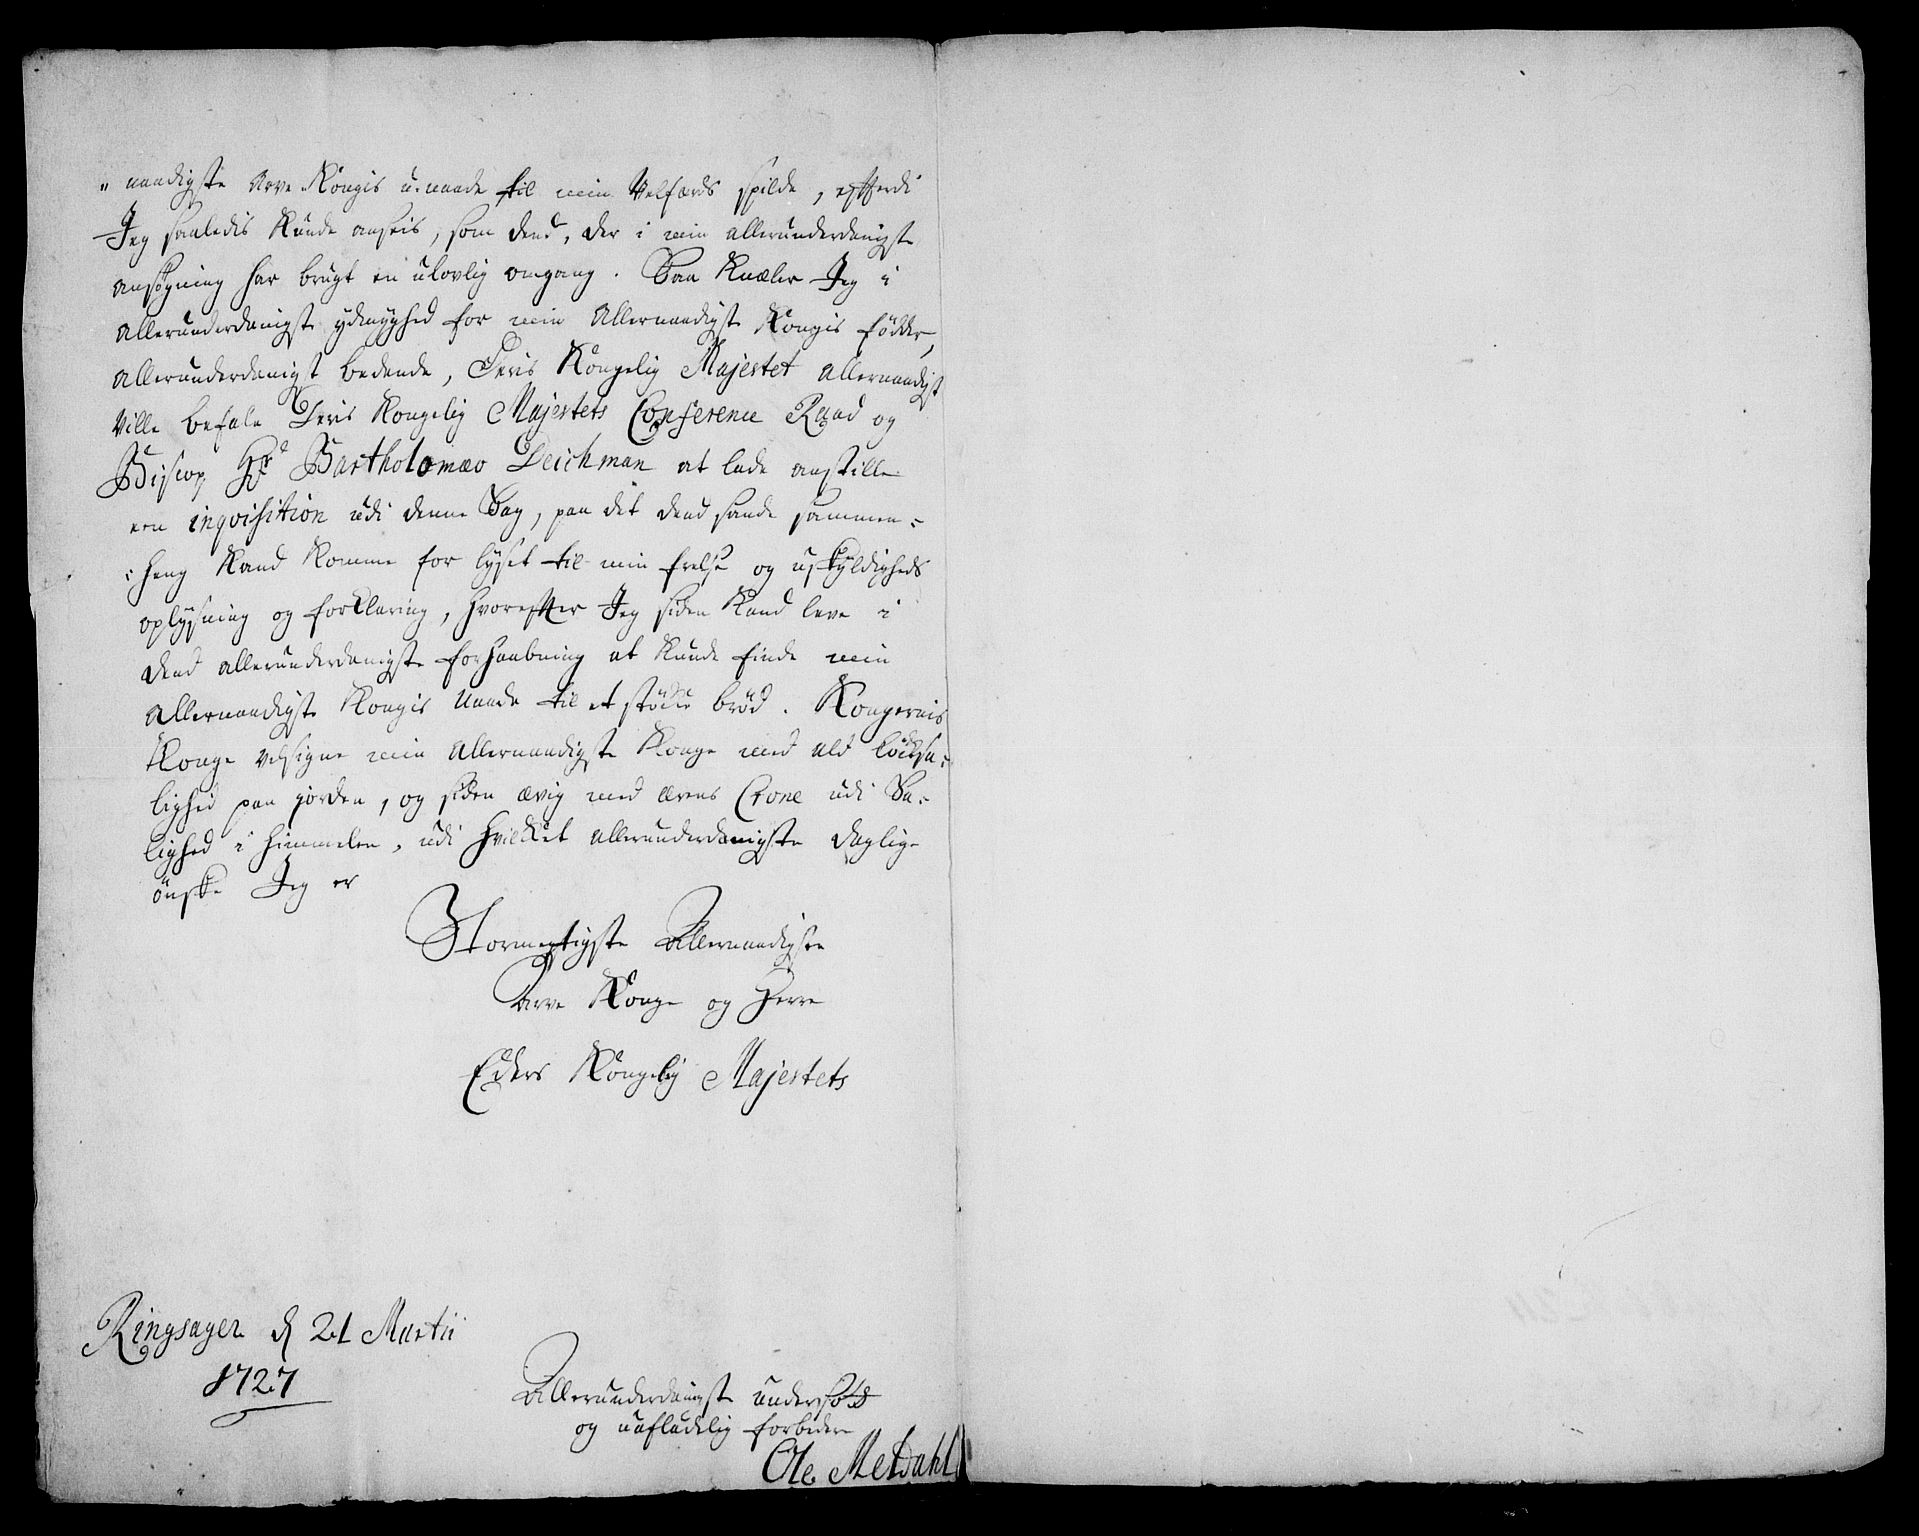 " naadigste Arve Kongis u-naade til min Velfærds spilde, efterdi
Jeg saaledis Kunde ansees, som dend, der i min allerunderdanigste
ansøgning har brugt en ulovlig omgang. Saa Knæler Jeg i
allerunderdanigst ydmyghed for min Allernaadigste Kongis fødder,
allerunderdanigst bedende, Deris Kongelig Majestet allernaadigst
Ville befale Deris Kongelig Majestets Conference Raad og
Biscop Hr Bartholomæo Deichman at lade anstille
een inqvisition udi denne Sag, paa det dend sande sammen-
:heng Kand Komme for lyset til min frelse og uskyldigheds
oplysning og forklaring, hvorefter Jeg siden Kand leve i
dend allerunderdanigste forhaabning at Kunde finde min
allernaadigste Kongis Naade til et støcke brød. Kongernis
Konge velsigne min allernaadigste Konge med all lycksa-
lighed paa jorden, og siden ævig med ærens Crone udi Sa-
lighed i Himmelen, udi hvilket allerunderdanigste daglige
ønske Jeg er
Stormegtigste Allernaadigste
Arve Konge og Herre
Eders Kongelig Majestets
Ringsager d 21 Martii
1727
Allerunderdanigst undersøtt
og uafladelig forbedere
Ole Meldahl